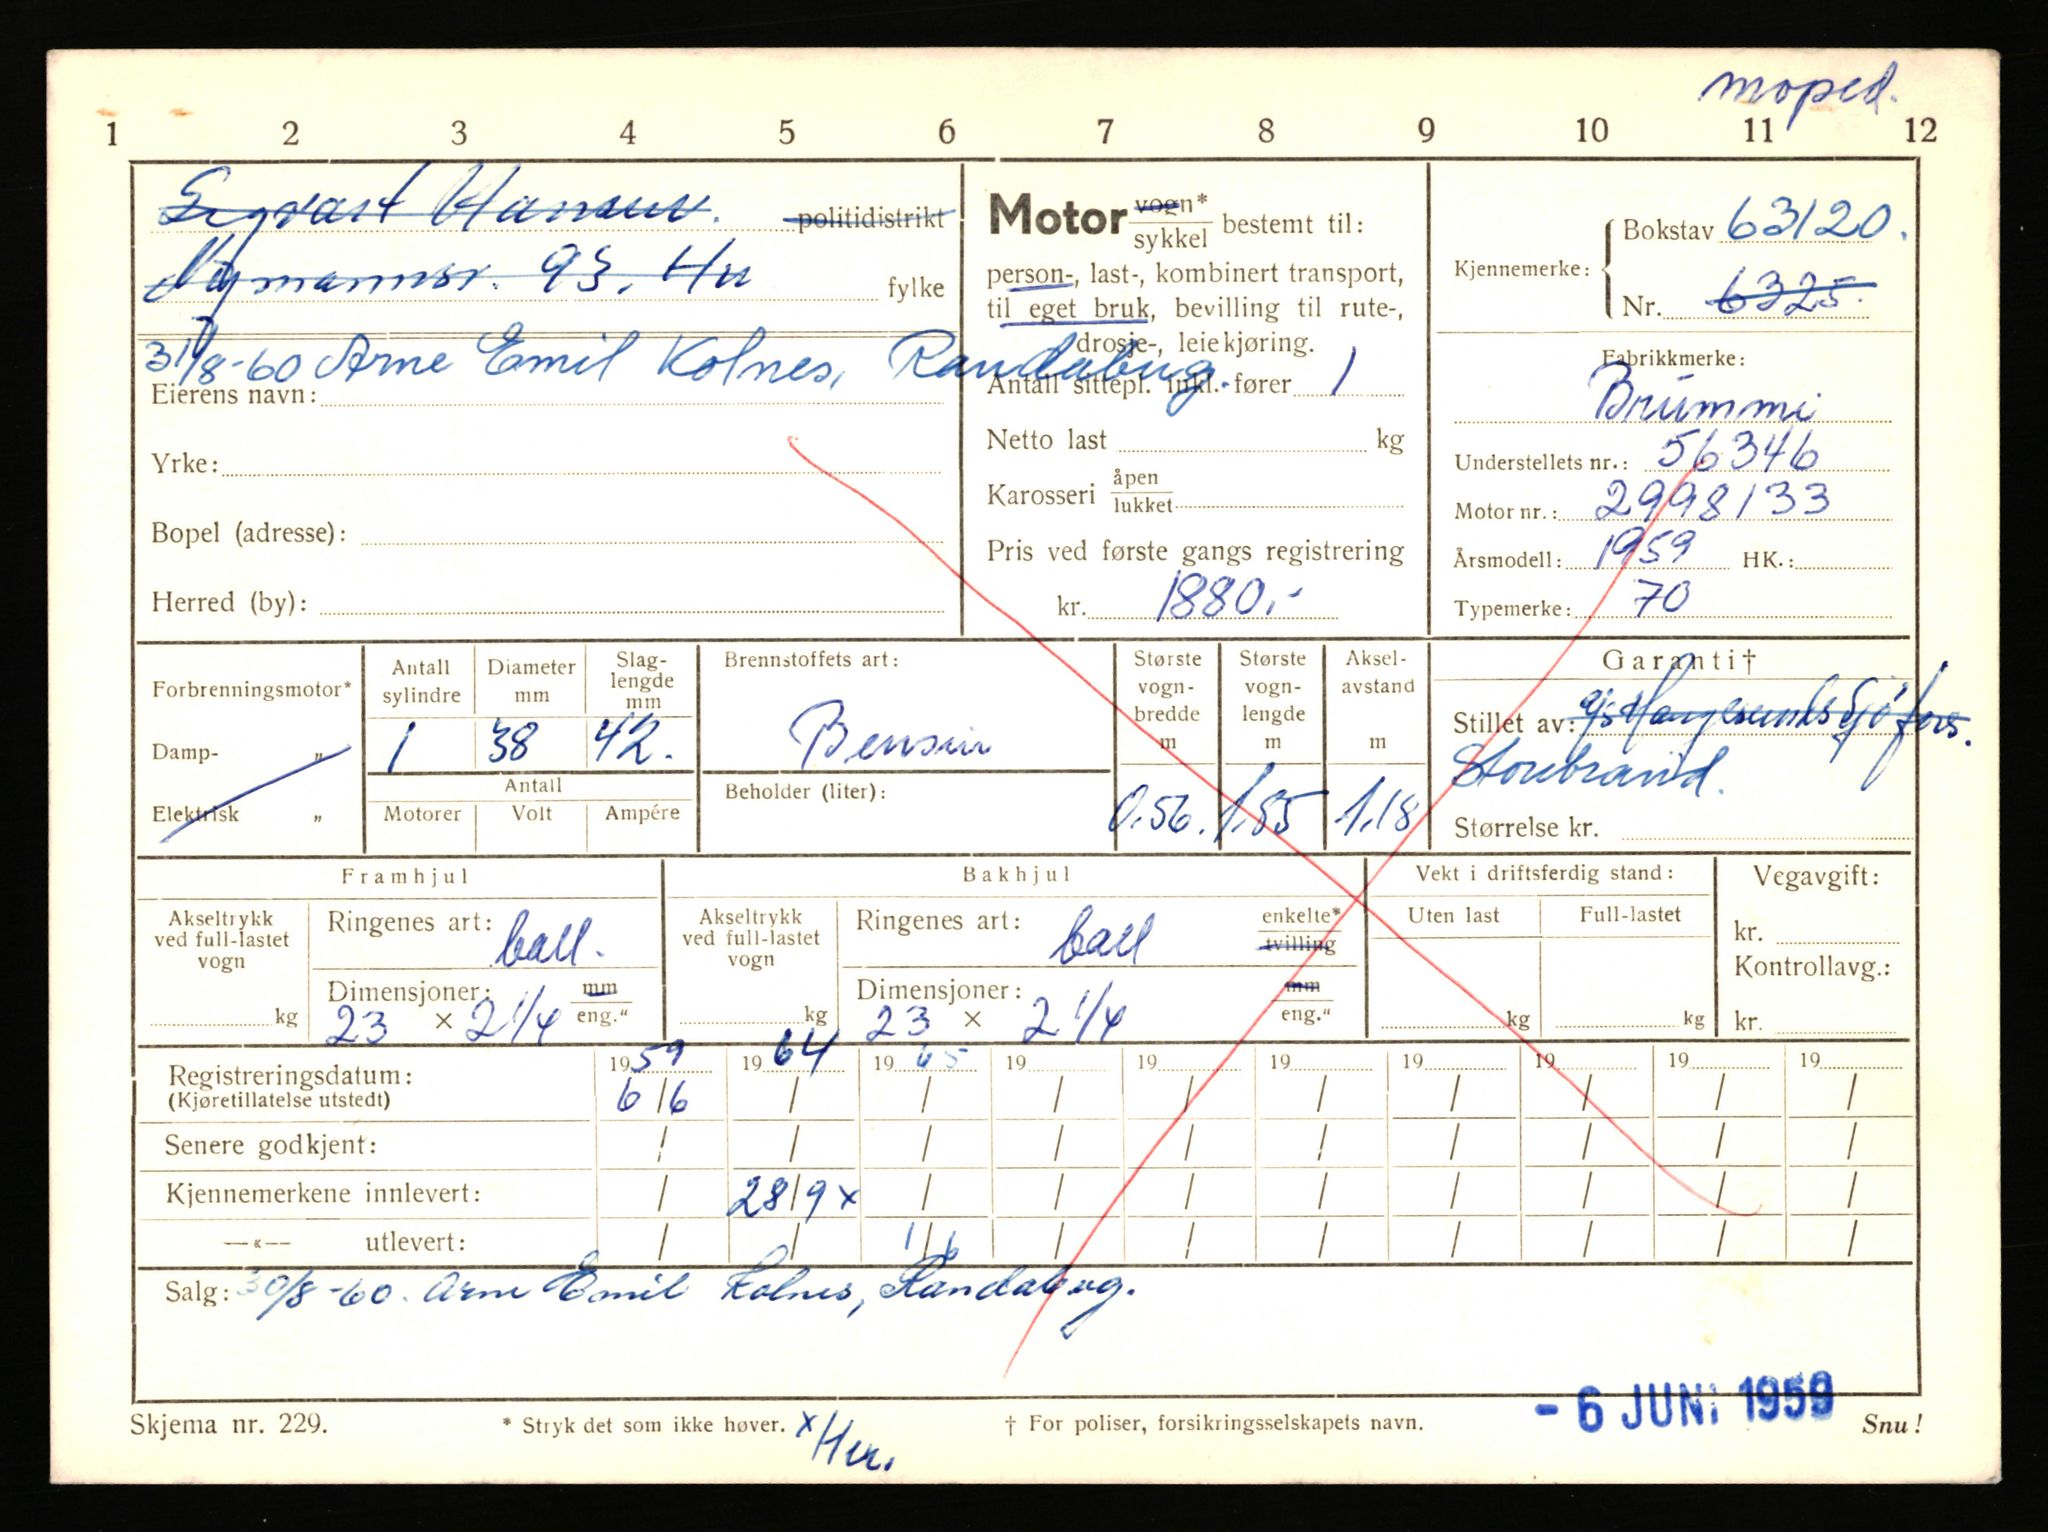 moped.
1 2 3 4 5 6 7 8 9 10 11 12
Sigvart Hansen. politidistrikt
93, Hu fylke
31/8-60 Arne Emil Kolnes, Randaberg.
Eierens navn:
Yrke:
Bopel (adresse):
Herred (by):
Motor vogn*
sykkel bestemt til:
person-, last-, kombinert transport,
til eget bruk, bevilling til rute-,
drosje-, leiekjøring.
Antall sittepl. inkl. fører 1
Netto last kg
Karosseri åpen
lukket
Pris ved første gangs registrering
kr. 1880,-
Kjennemerke: Bokstav 63120.
Nr. 6325.
Fabrikkmerke:
Brummi
Understellets nr.: 56346
Motor nr.: 2998133
Årsmodell: 1959 HK.:
Typemerke: 70
Forbrenningsmotor*
Damp- „
Elektrisk „
Antall sylindre
1
Diameter mm
38
Slag-
lengde
mm
42.
Antall
Motorer Volt Ampére
Brennstoffets art:
Bensin
Beholder (liter):
Største
vogn-
bredde
m
0,56.
Største
vogn-
lengde
m
1,85
Aksel-
avstand
m
1,18
Garanti†
Stillet av: A/S Haugesunds Sjøfors.
Storebrand.
Størrelse kr.
Framhjul
Akseltrykk
ved full-lastet
vogn
kg
Ringenes art: ball.
Dimensjoner: mm
23 × 2 1/4 eng.“
Bakhjul
Akseltrykk
ved full-lastet
vogn
kg
Ringenes art: ball enkelte*
tvilling
Dimensjoner: mm
23 × 2 1/4 eng.“
Vekt i driftsferdig stand:
Uten last Full-lastet
kg kg
Vegavgift:
kr.
Kontrollavg.:
kr.
1959 1964 1965 19 19 19 19 19 19 19
Registreringsdatum: 6/6 / / / / / / / / /
(Kjøretillatelse utstedt)
Senere godkjent: / / / / / / / / / /
Kjennemerkene innlevert: / 28/9 x / / / / / / / /
—«— utlevert: / / 1/6 / / / / / / /
Salg: 30/8-60. Arne Emil Kolnes, Randaberg.
- 6 JUNI 1959
Skjema nr. 229. * Stryk det som ikke høver. x/Hu. † For poliser, forsikringsselskapets navn. Snu!